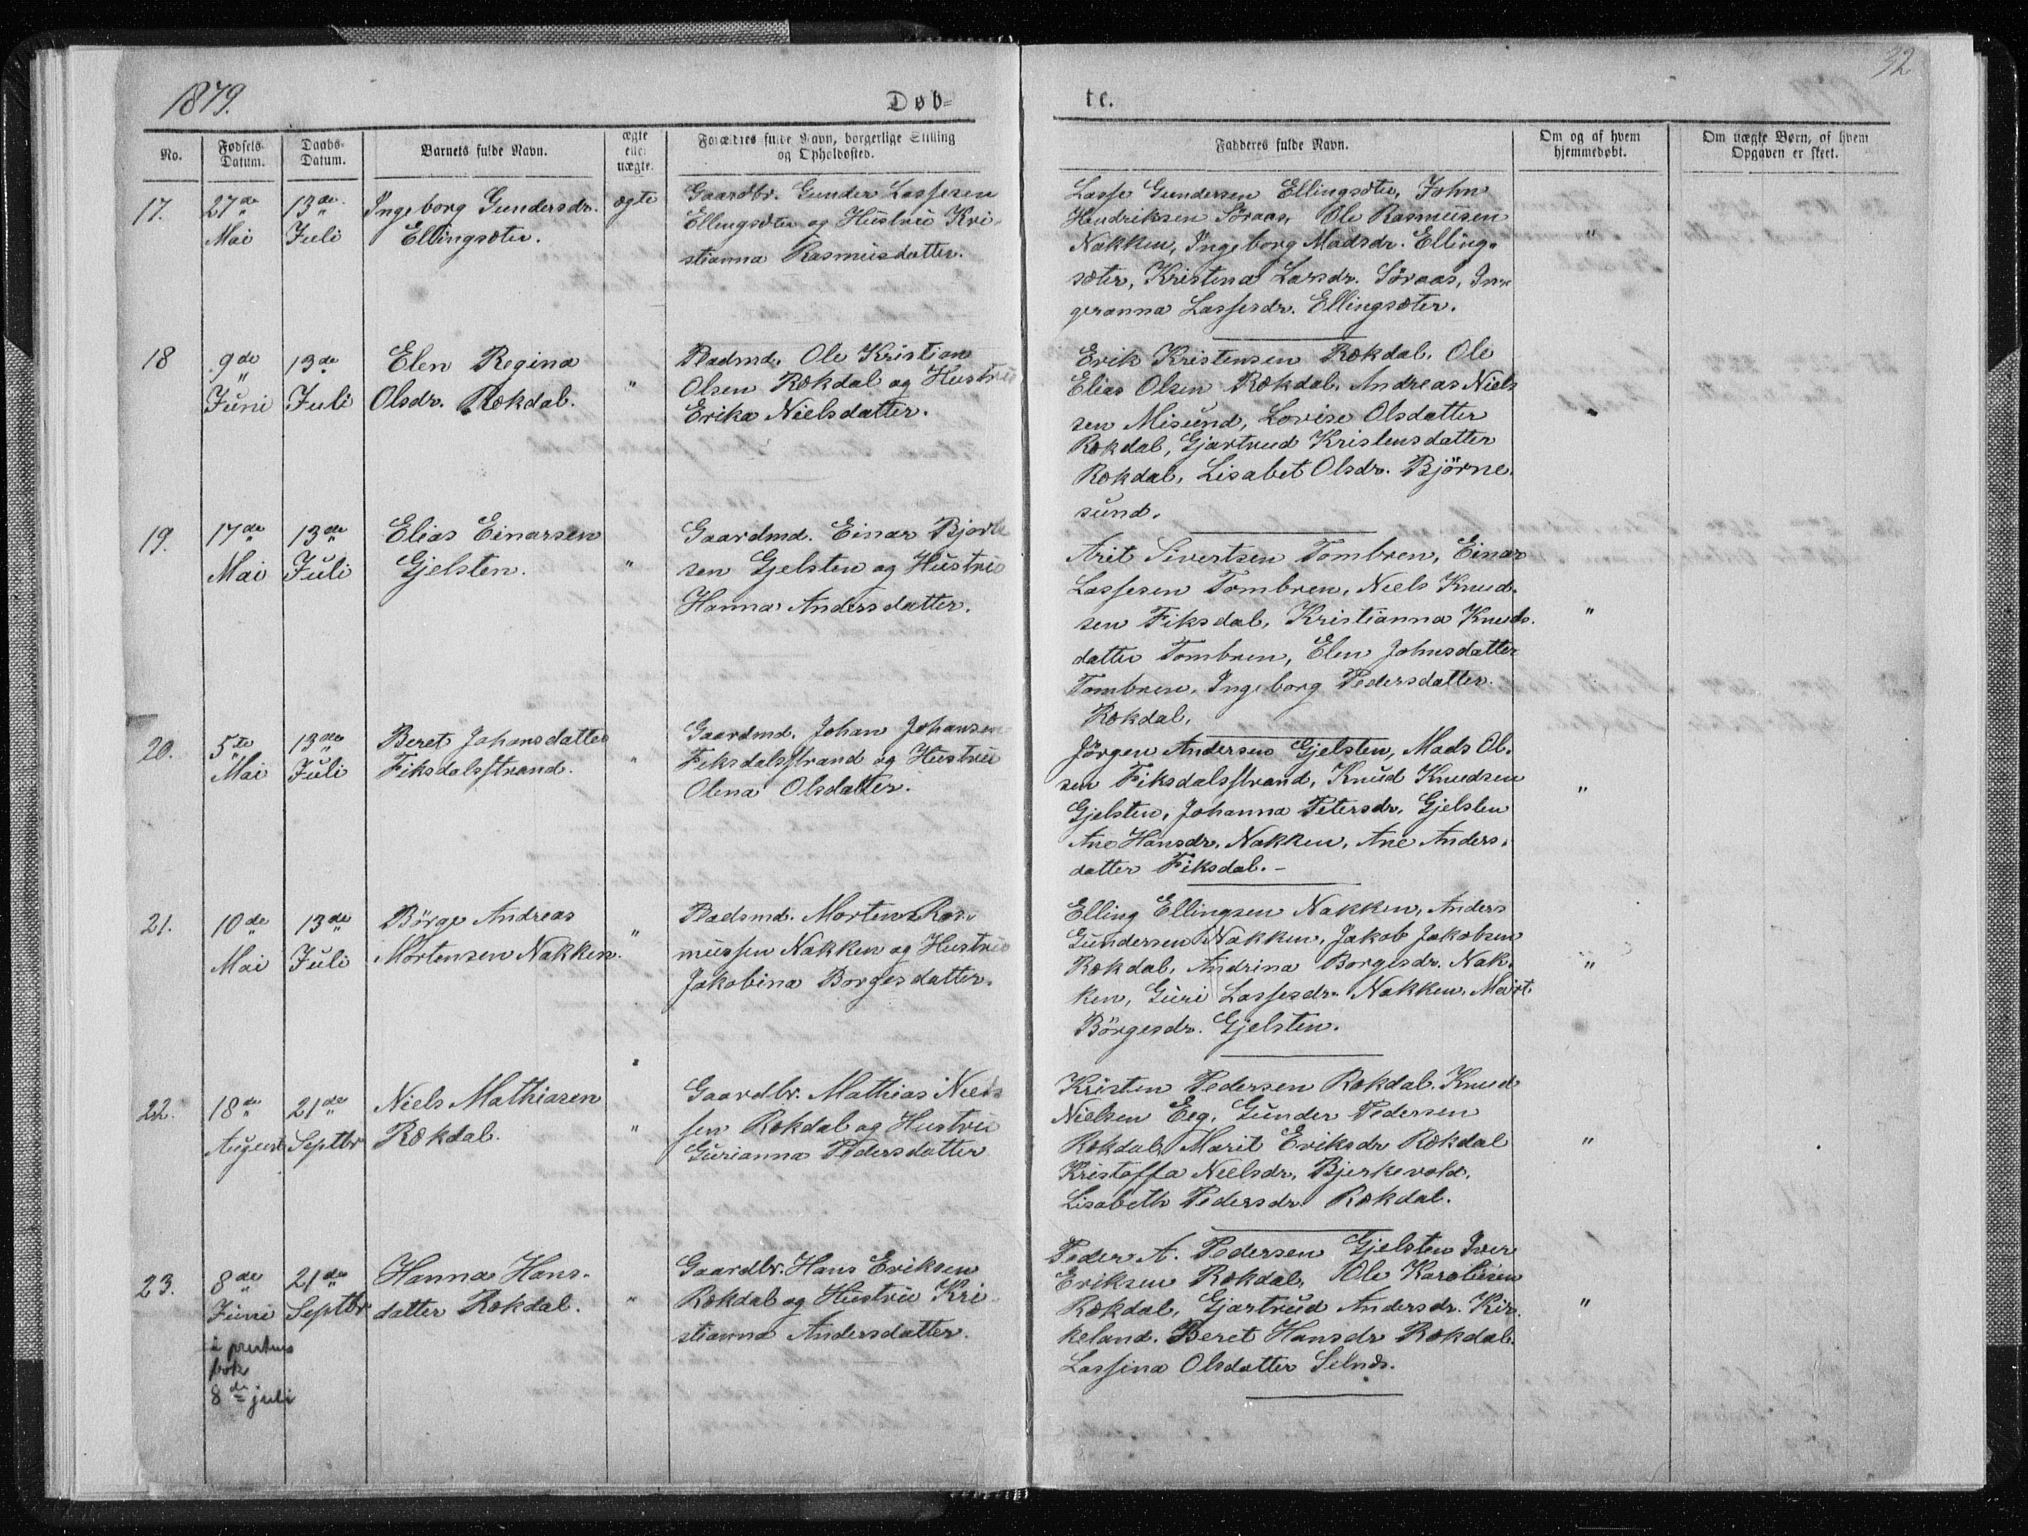 1879.
Døb-
te.
32
No.
Fødsels-
Datum.
Daabs-
Datum.
Barnets fulde Navn.
ægte
eller
uægte.
Forældres fulde Navn, borgerlige Stilling
og Opholdssted.
Fadderes fulde Navn.
Om og af hvem
hjemmedøbt.
Om uægte Børn, af hvem
Opgaven er skeet.
17.
27de
Mai
13de
Juli
Ingeborg Gundersdr.
Ellingsæter.
ægte
Gaardbr. Gunder Lassesen
Ellingsæter og Hustru Kri-
stianna Rasmusdatter.
Lasse Gundersen Ellingsæter, John
Hendriksen Søraas, Ole Rasmussen
Nakken, Ingeborg Madsdr. Elling-
sæter, Kristena Larsdr. Søraas, In-
geranna Lassesdr. Ellingsæter.
"
18
9de
Juni
13de
Juli
Elen Regina
Olsdr. Rekdal.
"
Pladsmd. Ole Kristian
Olsen Rekdal og Hustru
Erika Nielsdatter.
Erik Kristensen Rekdal, Ole
Elias Olsen Rekdal, Andreas Niels
sen Misund, Lovise Olsdatter
Rekdal, Gjartrud Kristensdatter
Rekdal, Lisabet Olsdr. Bjørne
sund.
"
19.
17de
Mai
13de
Juli
Elias Einarsen
Gjelsten.
"
Gaardmd. Einar Bjørle
sen Gjelsten og Hustru
Hanna Andersdatter.
Arit Sivertsen Tombren, Einar
Lassesen Tombren, Niels Knud-
sen Fiksdal, Kristianna Knuds-
datter Tombren, Elen Johnsdatter
Tombren, Ingeborg Pedersdatter
Rekdal.
"
20.
5te
Mai
13de
Juli
Beret Johansdatter
Fiksdalsstrand.
"
Gaardmd. Johan Johansen
Fiksdalsstrand og Hustru
Olena Olsdatter.
Jørgen Andersen Gjelsten, Mads Ol-
sen Fiksdalsstrand, Knud Knudsen
Gjelsten, Johanna Petersdr. Gjelsten
Ane Hansdr. Nakken, Ane Anders-
datter Fiksdal.-
"
21.
10de
Mai
13de
Juli
Børge Andreas
Mortensen Nakken.
"
Pladsmd. Morten Ras-
mussen Nakken og Hustru
Jakobina Børgesdatter.
Elling Ellingsen Nakken, Anders
Gundersen Nakken, Jakob Jakobsen
Rekdal, Andrina Børgesdr. Nak-
ken, Guri Lassesdr. Nakken, Marit
Børgesdr. Gjelsten.
"
22.
18de
August
21de
Septbr
Niels Mathiasen
Rekdal.
"
Gaardbr. Mathias Niel-
sen Rekdal og Hustru
Gurianna Pedersdatter
Kristen Pedersen Rekdal. Knud
Nielsen Eeg, Gunder Pedersen
Rekdal, Marit Eriksdr. Rekdal
Kristoffa Nielsdr. Bjerkevold,
Lisabeth Pedersdr. Rekdal.
"
23.
8de
Juni
i prestens
bok
8de juli
21de
Septbr
Hanna Hans-
datter Rekdal.
"
Gaardbr. Hans Eriksen
Rekdal og Hustru Kri-
stianna Andersdatter.
Peder A. Pedersen Gjelsten Iver
Eriksen Rekdal, Ole Karolusen
Rekdal, Gjartrud Andersdr. Kir-
keland. Beret Hansdr Rekdal.
Lassina Olsdatter Selnæs.
"